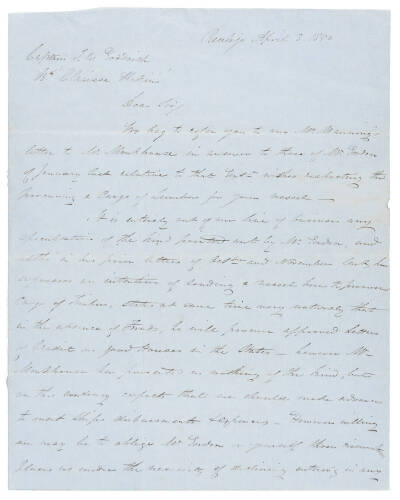 Realejo April 3. 1850
Captain
Dear Sir
We beg to refer you to our Mr Manning's
letter to Mr Monkhouse in answer to those of Mr
of January last relative to that
procuring a Cargo of Lumber for your vessel —
It is entirely out of our line of business any
speculation of the kind pointed out by Mr and
altho in his prior letters of and November last he
expresses an intention of sending a vessel here to procure
Cargo of Timber, at same time very naturally that
in the absence of Funds, he will procure approved Letters
of Credit on good houses in the States — however Mr
Monkhouse has presented us nothing of the kind, but
on the contrary expects that we should make advances
to meet Ships disbursements & Expenses — However willing
we may be to oblige Mr or yourself these
places us under the necessity of declining entering in any